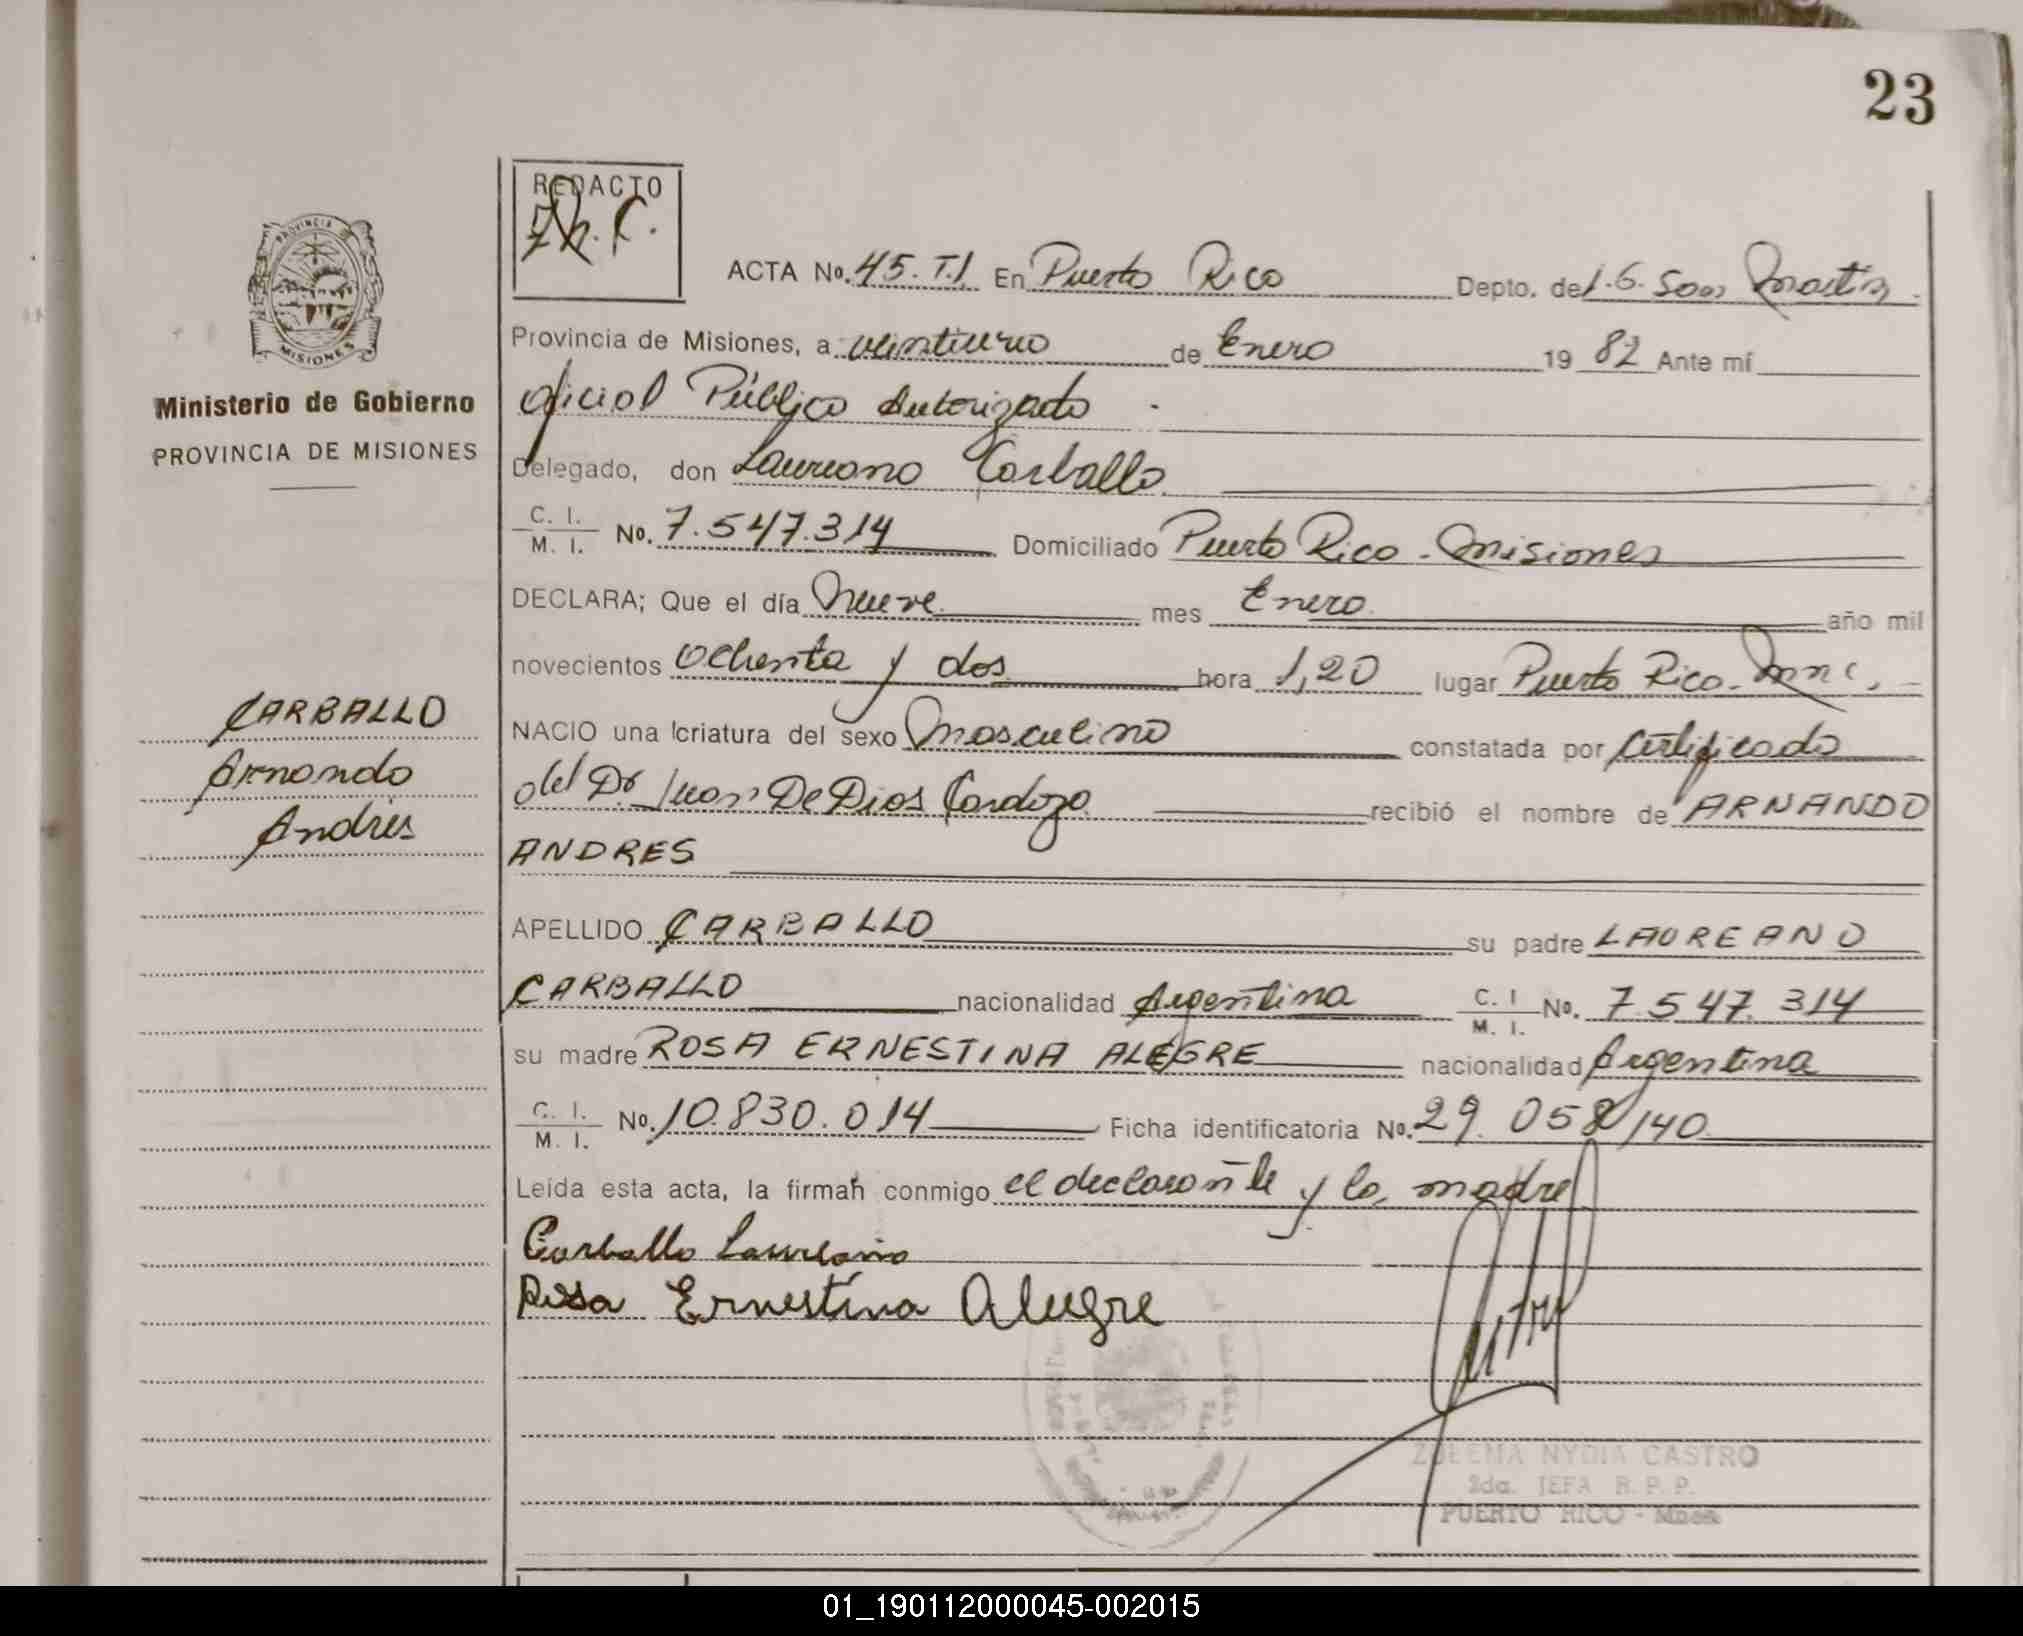 23
REDACTO
PROVINCIA
MISIONES
ACTA No. 45. T.I. En Puerto Rico Depto. de L.G. San Martin
Provincia de Misiones, a veintiuno de Enero 19 82 Ante mí
Ministerio de Gobierno
oficial Público Autorizado
PROVINCIA DE MISIONES
Delegado, don Laureano Carballo
C. I. / M. I. No. 7.547.314 Domiciliado Puerto Rico - Misiones
DECLARA; Que el día Nueve mes Enero año mil
novecientos ochenta y dos hora 1,20 lugar Puerto Rico - Mnes.
CARBALLO
Arnando
Andrés
NACIO una criatura del sexo Masculino constatada por certificado
del Dr Juan De Dios Cardozo recibió el nombre de ARNANDO
ANDRES
APELLIDO CARBALLO su padre LAUREANO
CARBALLO nacionalidad Argentina C. I / M. I. No. 7.547.314
su madre ROSA ERNESTINA ALEGRE nacionalidad Argentina
C. I. / M. I. No. 10.830.014 Ficha identificatoria No. 29.058/140
Leída esta acta, la firman conmigo el declarante y la madre
Carballo Laureano
Rosa Ernestina Alegre
ZULEMA NYDIA CASTRO
2da. JEFA R. P. P.
PUERTO RICO - Mnes
01_190112000045-002015